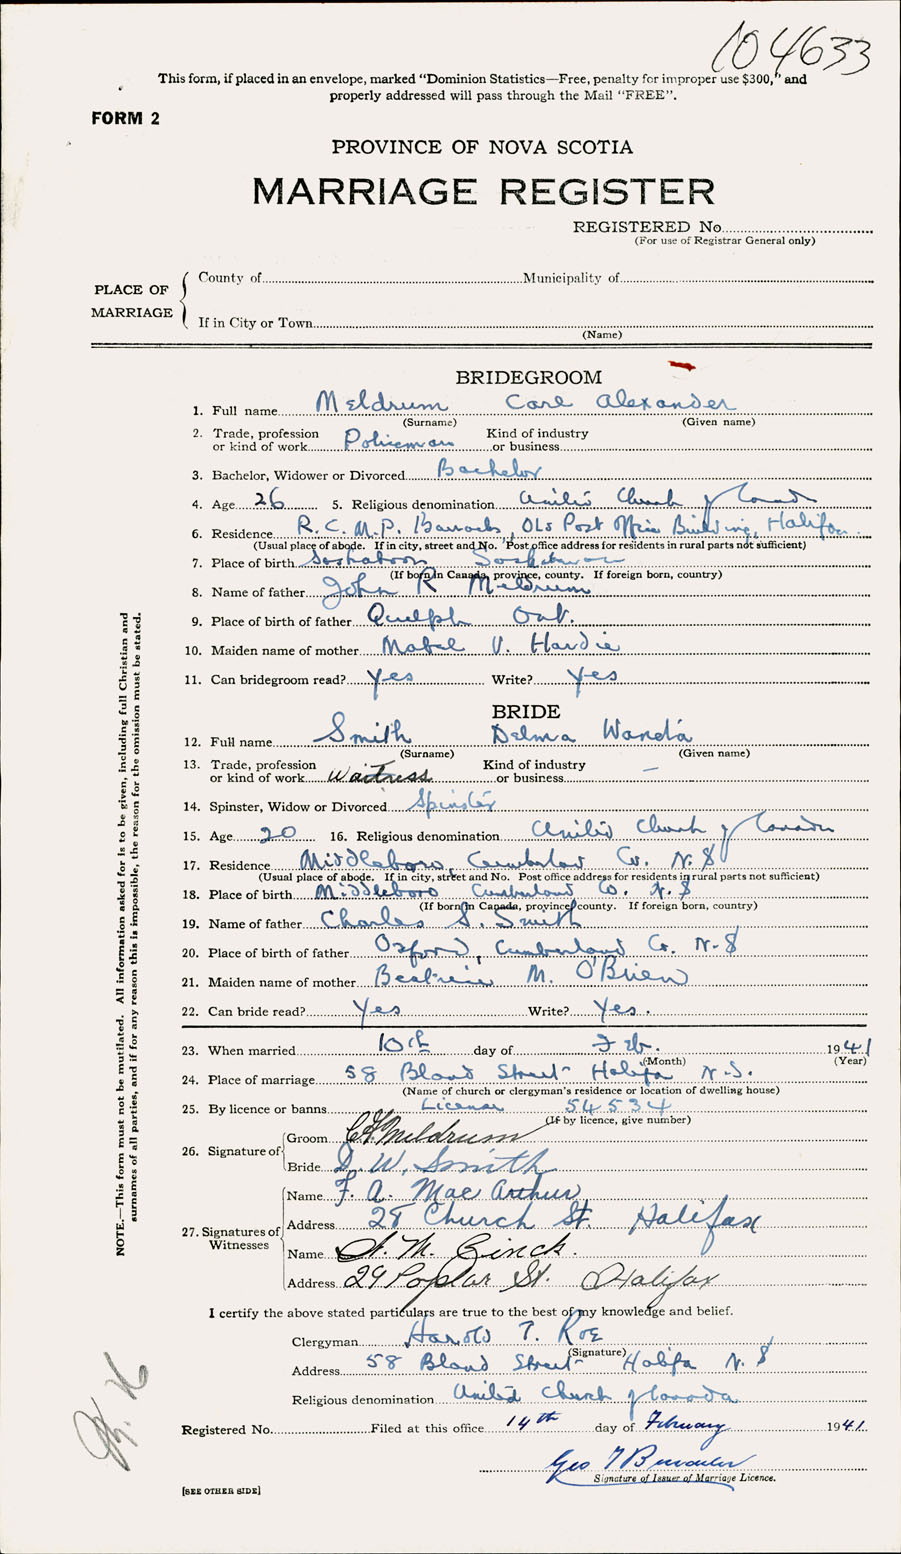 104633
This form, if placed in an envelope, marked "Dominion Statistics—Free, penalty for improper use $300," and
properly addressed will pass through the Mail "FREE".
FORM 2
PROVINCE OF NOVA SCOTIA
MARRIAGE REGISTER
REGISTERED No.
(For use of Registrar General only)
PLACE OF MARRIAGE
County of Municipality of
If in City or Town
(Name)
BRIDEGROOM
1. Full name Meldrum Carl Alexander
(Surname) (Given name)
2. Trade, profession or kind of work Policeman Kind of industry or business
3. Bachelor, Widower or Divorced Bachelor
4. Age 26 5. Religious denomination United Church of Canada
6. Residence R.C.M.P. Barracks, Old Post Office Building, Halifax
(Usual place of abode. If in city, street and No. Post office address for residents in rural parts not sufficient)
7. Place of birth Saskatoon Saskatchewan
(If born in Canada, province, county. If foreign born, country)
8. Name of father John R Meldrum
9. Place of birth of father Guelph Ont.
10. Maiden name of mother Mabel V. Hardie
11. Can bridegroom read? Yes Write? Yes
BRIDE
12. Full name Smith Delma Wanda
(Surname) (Given name)
13. Trade, profession or kind of work Waitress Kind of industry or business –
14. Spinster, Widow or Divorced Spinster
15. Age 20 16. Religious denomination United Church of Canada
17. Residence Middleboro, Cumberland Co. N.S
(Usual place of abode. If in city, street and No. Post office address for residents in rural parts not sufficient)
18. Place of birth Middleboro Cumberland Co. N.S
(If born in Canada, province, county. If foreign born, country)
19. Name of father Charles S. Smith
20. Place of birth of father Oxford, Cumberland Co. N.S
21. Maiden name of mother Beatrice M. O'Brien
22. Can bride read? Yes Write? Yes.
23. When married 10th day of Feb. 1941
(Month) (Year)
24. Place of marriage 58 Bland Street Halifax N.S.
(Name of church or clergyman's residence or location of dwelling house)
25. By licence or banns License 54534
(If by licence, give number)
26. Signature of Groom C A Meldrum
Bride D. W. Smith
27. Signatures of Witnesses
Name F. A. MacArthur
Address 28 Church St. Halifax
Name M.
Address 29 Poplar St. Halifax
I certify the above stated particulars are true to the best of my knowledge and belief.
Clergyman Harold T. Roe
(Signature)
Address 58 Bland Street Halifax N.S
Religious denomination United Church of Canada
Registered No. Filed at this office 14th day of February 1941
Geo
Signature of Issuer of Marriage Licence.
[SEE OTHER SIDE]
NOTE.—This form must not be mutilated. All information asked for is to be given, including full Christian and
surnames of all parties, and if for any reason this is impossible, the reason for the omission must be stated.